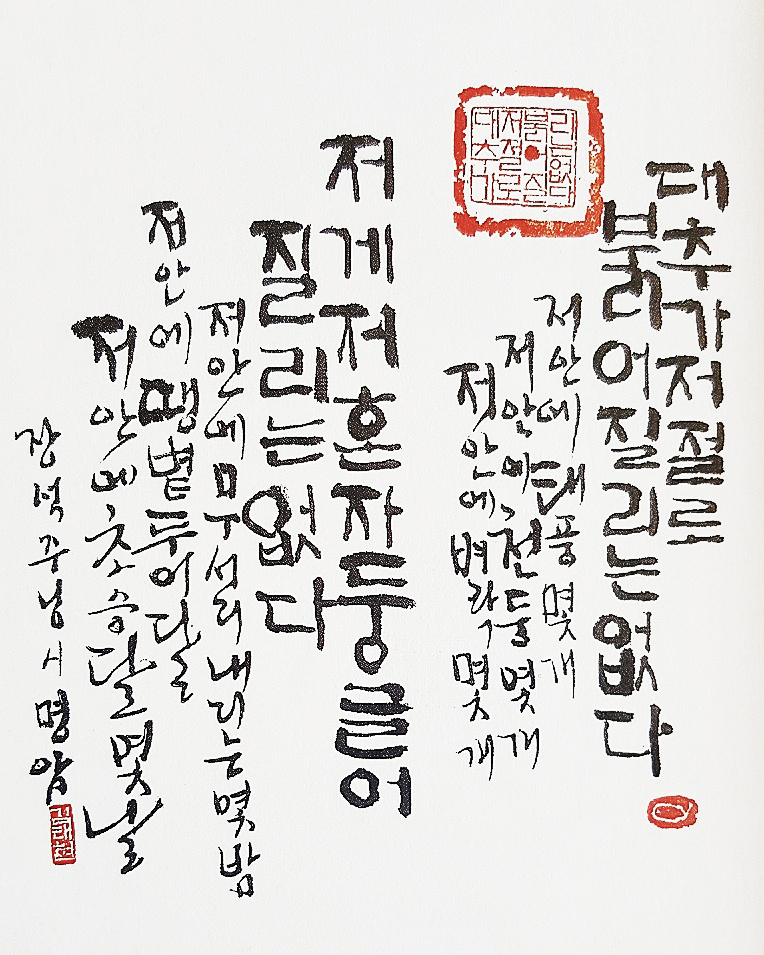 대추가
저절로
붉어질
리는없다
대추가저절로
붉어질리는없다
저안에태풍몇개
저안에천둥몇개
저안에벼락몇개
저게저혼자둥글어
질리는없다
저안에무서리내리는몇밤
저안에땡볕두어달
저안에초승달몇날
장석주님시명암